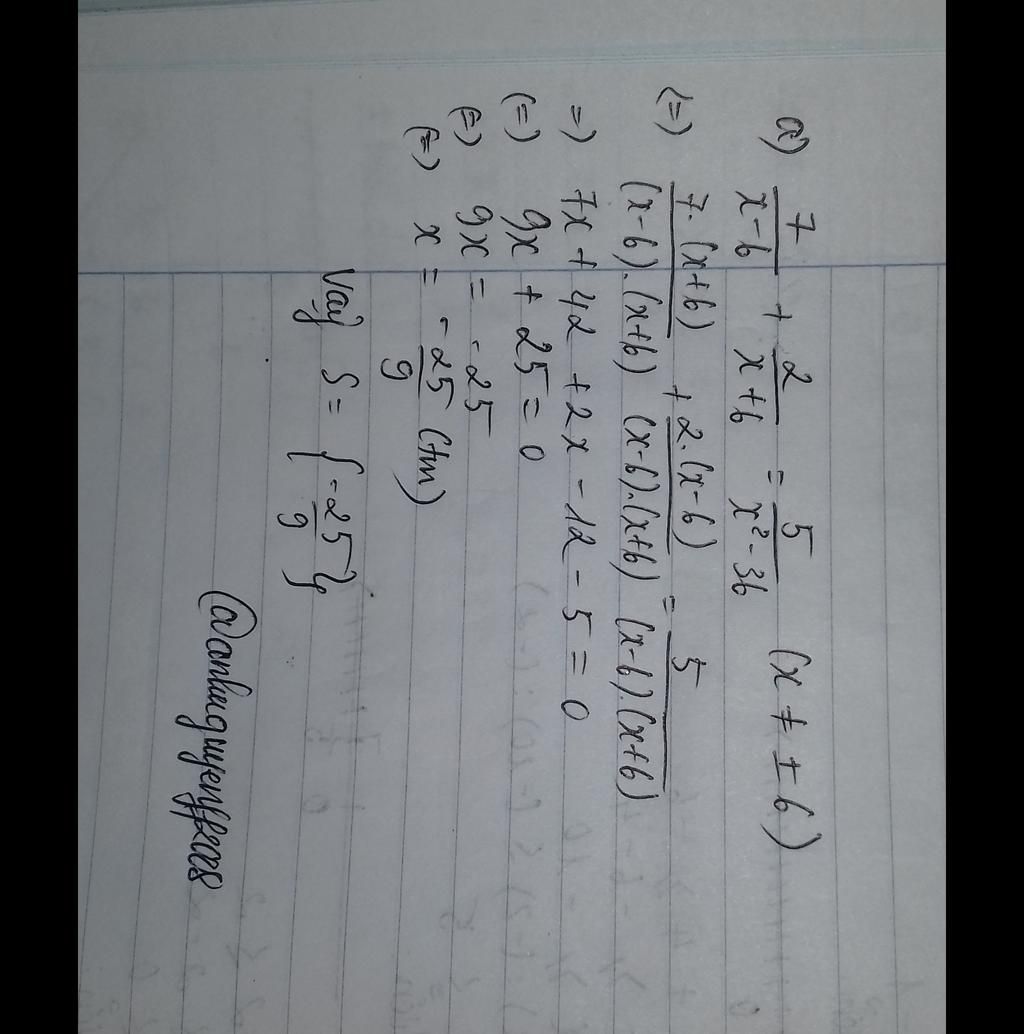 a) 7/(x-6) + 2/(x+6) = 5/(x²-36) (x ≠ ±6)
(=) 7.(x+6)/((x-6).(x+6)) + 2.(x-6)/((x-6).(x+6)) = 5/((x-6).(x+6))
=) 7x + 42 + 2x - 12 - 5 = 0
(=) 9x + 25 = 0
(=) 9x = -25
(=) x = -25/9 (tm)
Vậy S = {-25/9}